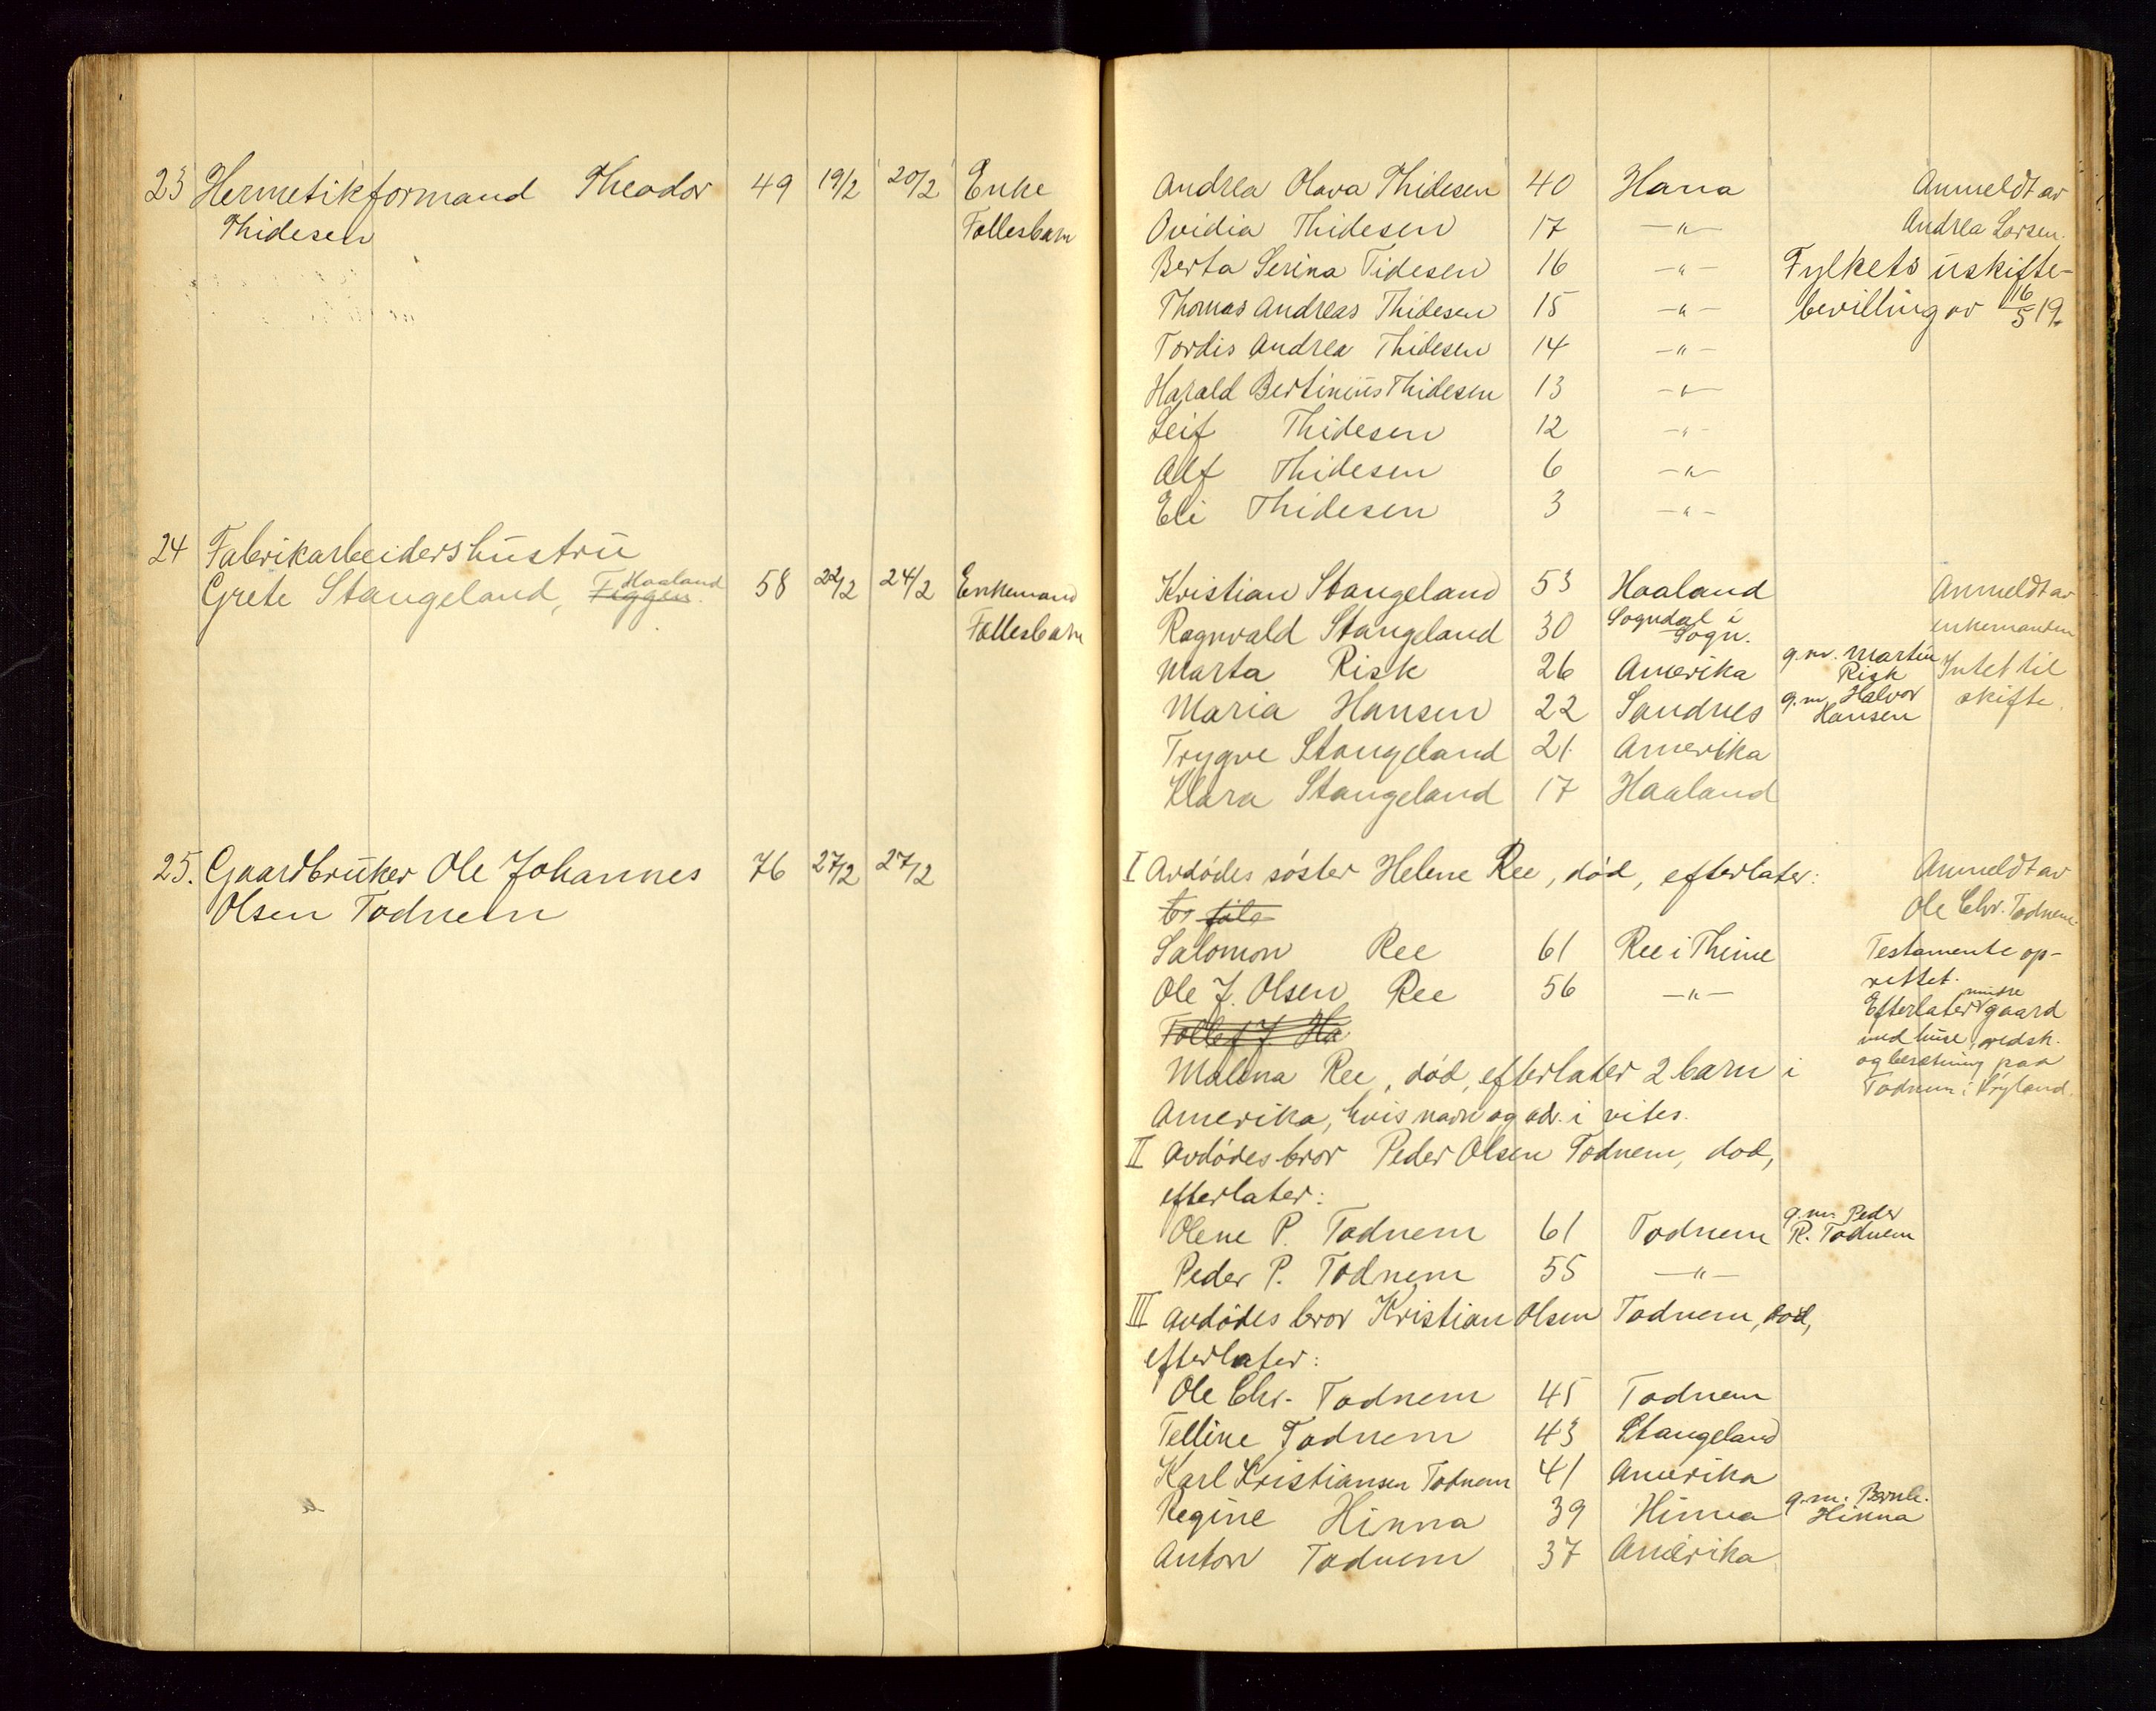 23 Hermetikformand Theodor 49 19/2 20/2 Enke
Thidesen Fællesbarn
24 Fabrikarbeidershustru
Grete Stangeland, Figgen Haaland 58 22/2 24/2 Enkemand
Fællesbarn
25. Gaardbruker Ole Johannes 76 27/2 27/2
Olsen Todnem
Andrea Olava Thidesen 40 Hana Anmeldt av
Ovidia Thidesen 17 -"- Andrea Larsen.
Berta Serina Tidesen 16 -"- Fylkets uskifte-
Thomas Andreas Thidesen 15 -"- bevilling av 16/5 19.
Tordis Andrea Thidesen 14 -"-
Harald Bertinius Thidesen 13 -"-
Leif Thidesen 12 -"-
Alf Thidesen 6 -"-
Eli Thidesen 3 -"-
Kristian Stangeland 53 Haaland Anmeldt av
Ragnvald Stangeland 30 Sogndal i Sogn. enkemanden
Marta Risk 26 Amerika g.m. Martin Risk Intet til
Maria Hansen 22 Sandnes g.m. Halvor Hansen skifte.
Trygve Stangeland 21. Amerika
Klara Stangeland 17 Haaland
I Avdødes søster Helene Ree, død, efterlater: Anmeldt av
Ole Chr. Todnem.
Salomon Ree 61 Ree i Thime Testamente op-
rettet.
Ole J. Olsen Ree 56 -"- Efterlater mindre gaard
Tollef J. Ha med huse, redsk.
Malena Ree, død, efterlater 2 barn i og besætning paa
Todnem i Høyland.
Amerika, hvis navn og adr. i vites.
II Avdødes bror Peder Olsen Todnem, død,
efterlater:
Olene P. Todnem 61 Todnem g.m. Peder R. Todnem
Peder P. Todnem 55 -"-
III Avdødes bror Kristian Olsen Todnem, død,
efterlater:
Ole Chr. Todnem 45 Todnem
Telline Todnem 43 Stangeland
Karl Kristiansen Todnem 41 Amerika
Regine Hinna 39 Hinna g.m. Bernh. Hinna
Anton Todnem 37 Amerika